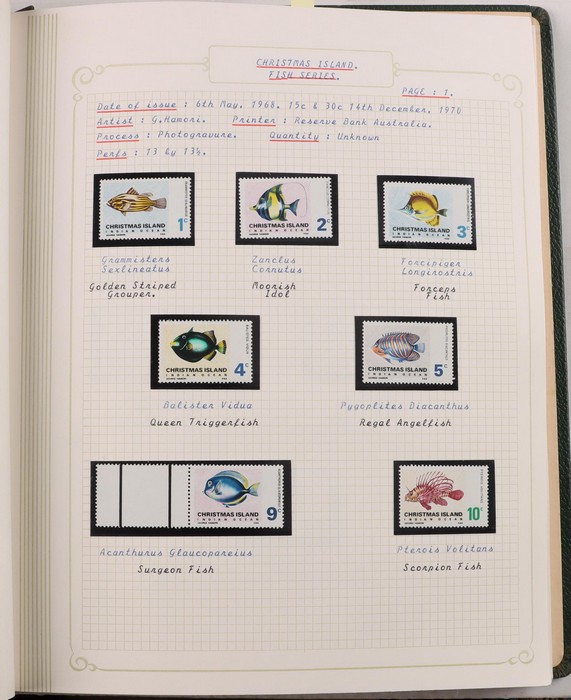 CHRISTMAS ISLAND.
FISH SERIES.
PAGE : 1.
Date of issue : 6th May. 1968. 15c & 30c 14th December. 1970
Artist : G.Hamori. Printer : Reserve Bank Australia.
Process : Photogravure. Quantity : Unknown
Perfs : 13 by 13½.
1c
CHRISTMAS ISLAND
INDIAN OCEAN
2c
CHRISTMAS ISLAND
INDIAN OCEAN
3c
CHRISTMAS ISLAND
INDIAN OCEAN
Grammisters
Sexlineatus
Golden Striped
Grouper.
Zanclus
Cornutus
Moorish
Idol
Forcipiger
Longirostris
Forceps
Fish
4c
CHRISTMAS ISLAND
INDIAN OCEAN
5c
CHRISTMAS ISLAND
INDIAN OCEAN
Balister Vidua
Queen Triggerfish
Pygoplites Diacanthus
Regal Angelfish
9c
CHRISTMAS ISLAND
INDIAN OCEAN
10c
CHRISTMAS ISLAND
INDIAN OCEAN
Acanthurus Glaucopareius
Surgeon Fish
Pterois Volitans
Scorpion Fish